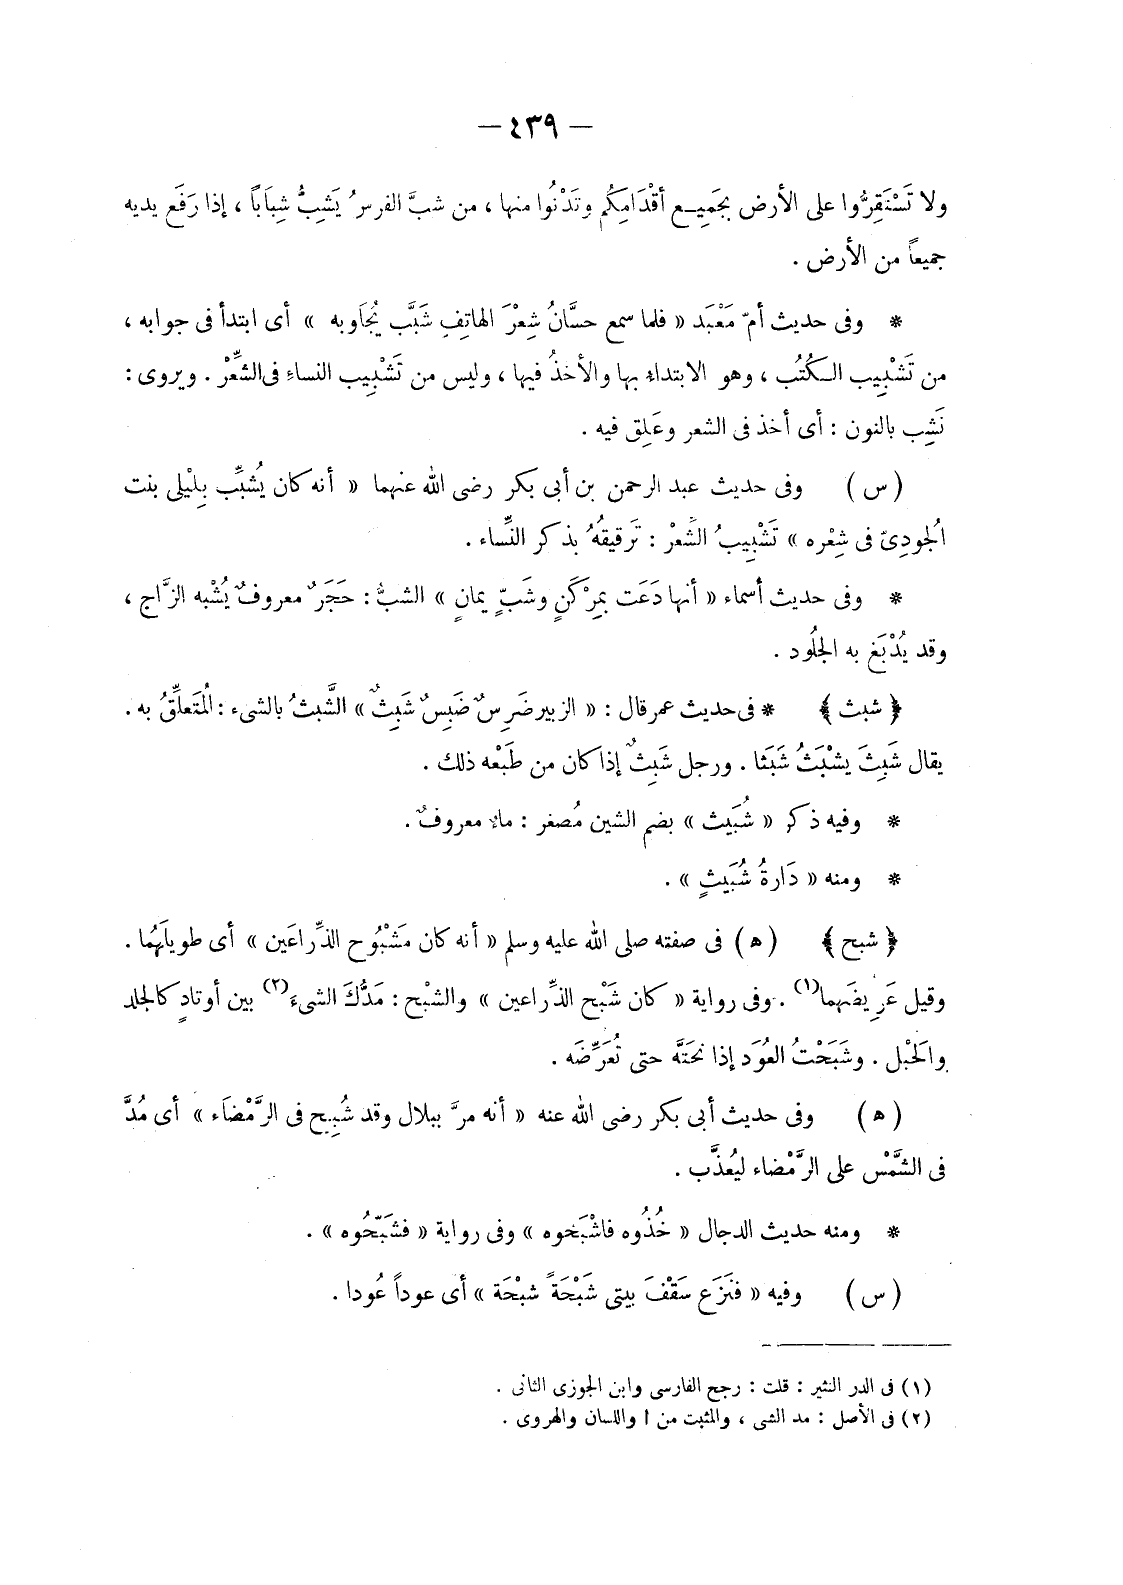 — ٤٣٩ —
ولا تَسْتَقِرُّوا على الأرض بجَمِيع أقْدَامِكُم وتَدْنُوا منها ، من شبَّ الفرسُ يَشِبُّ شِبَاباً ، إذا رَفَع يديه
جميعاً من الأرض .
* وفى حديث أمّ مَعْبَد « فلما سمع حسَّانُ شِعْرَ الهاتِفِ شَبَّب يُجَاوبه » أى ابتدأ فى جوابه ،
من تَشْبِيب الكُتُب ، وهو الابتداء بها والأخذُ فيها ، وليس من تَشْبِيب النساءِ فى الشِّعْر . ويروى :
نَشِب بالنون : أى أخذ فى الشعر وعَلِق فيه .
( س ) وفى حديث عبد الرحمن بن أبى بكر رضى الله عنهما « أنه كان يُشبِّب بِلَيْلى بنت
الْجودِىّ فى شِعْره » تَشْبِيبُ الشِّعْر : تَرقيقُهُ بذكر النِّساء .
* وفى حديث أسماء « أنها دَعَت بمِرْكَنٍ وشَبٍّ يمانٍ » الشبُّ : حَجَرٌ معروفٌ يُشْبه الزَّاج ،
وقد يُدْبَغ به الجلُود .
﴿ شبث ﴾ * فى حديث عمر قال : « الزبير ضَرِسٌ ضَبِسٌ شَبِثٌ » الشَّبثُ بالشىء : الُمتَعلِّقُ به .
يقال شَبِثَ يشْبَثُ شَبَثا . ورجل شَبِثٌ إذا كان من طَبْعه ذلك .
* وفيه ذكر « شُبَيث » بضم الشين مُصغر : ماء معروفٌ .
* ومنه « دَارةُ شُبَيثٍ » .
﴿ شبح ﴾ ( ه ) فى صفته صلى الله عليه وسلم « أنه كان مَشْبُوح الذِّراعَين » أى طويلَهُما .
وقيل عَرِيضَهما(١) . وفى رواية « كان شَبْح الذِّراعين » والشبْح : مَدُّكَ الشىءَ(٢) بين أوتادٍ كالجلد
والحَبْل . وشَبَحْتُ العُوَد إذا نحَتَّه حتى تُعَرِّضَه .
( ه ) وفى حديث أبى بكر رضى الله عنه « أنه مرَّ ببلال وقد شُبِح فى الرَّمْضَاء » أى مُدَّ
فى الشَّمْس على الرَّمْضاء ليُعذَّب .
* ومنه حديث الدجال « خُذُوه فاشْبَحُوه » وفى رواية « فشَبّحُوه » .
( س ) وفيه « فنَزَع سَقْفَ بيتى شَبْحَةً شبْحَة » أى عوداً عُودا .
(١) فى الدر النثير : قلت : رجح الفارسى وابن الجوزى الثانى .
(٢) فى الأصل : مد الشى ، والمثبت من ا واللسان والهروى .